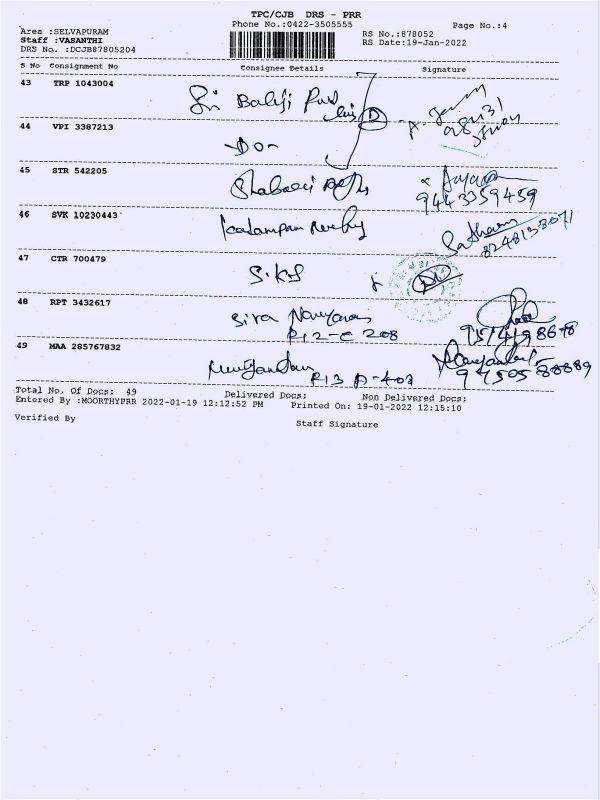 TPC/CJB DRS - PRR
Phone No.:0422-3505555
Page No.:4
Area :SELVAPURAM
Staff :VASANTHI
DRS No. :DCJB87805204
RS No.:878052
RS Date:19-Jan-2022
S No Consignment No Consignee Details Signature
43 TRP 1043004
Sri Balaji
44 VPI 3387213
-Do-
45 STR 542205
9443359459
46 SVK 10230443
47 CTR 700479
S.KS
48 RPT 3432617
Siva Narayanan
R12-C 208
49 MAA 285767832
R13 A-403
Total No. Of Docs: 49 Delivered Docs: Non Delivered Docs:
Entered By :MOORTHYPRR 2022-01-19 12:12:52 PM Printed On: 19-01-2022 12:15:10
Verified By Staff Signature